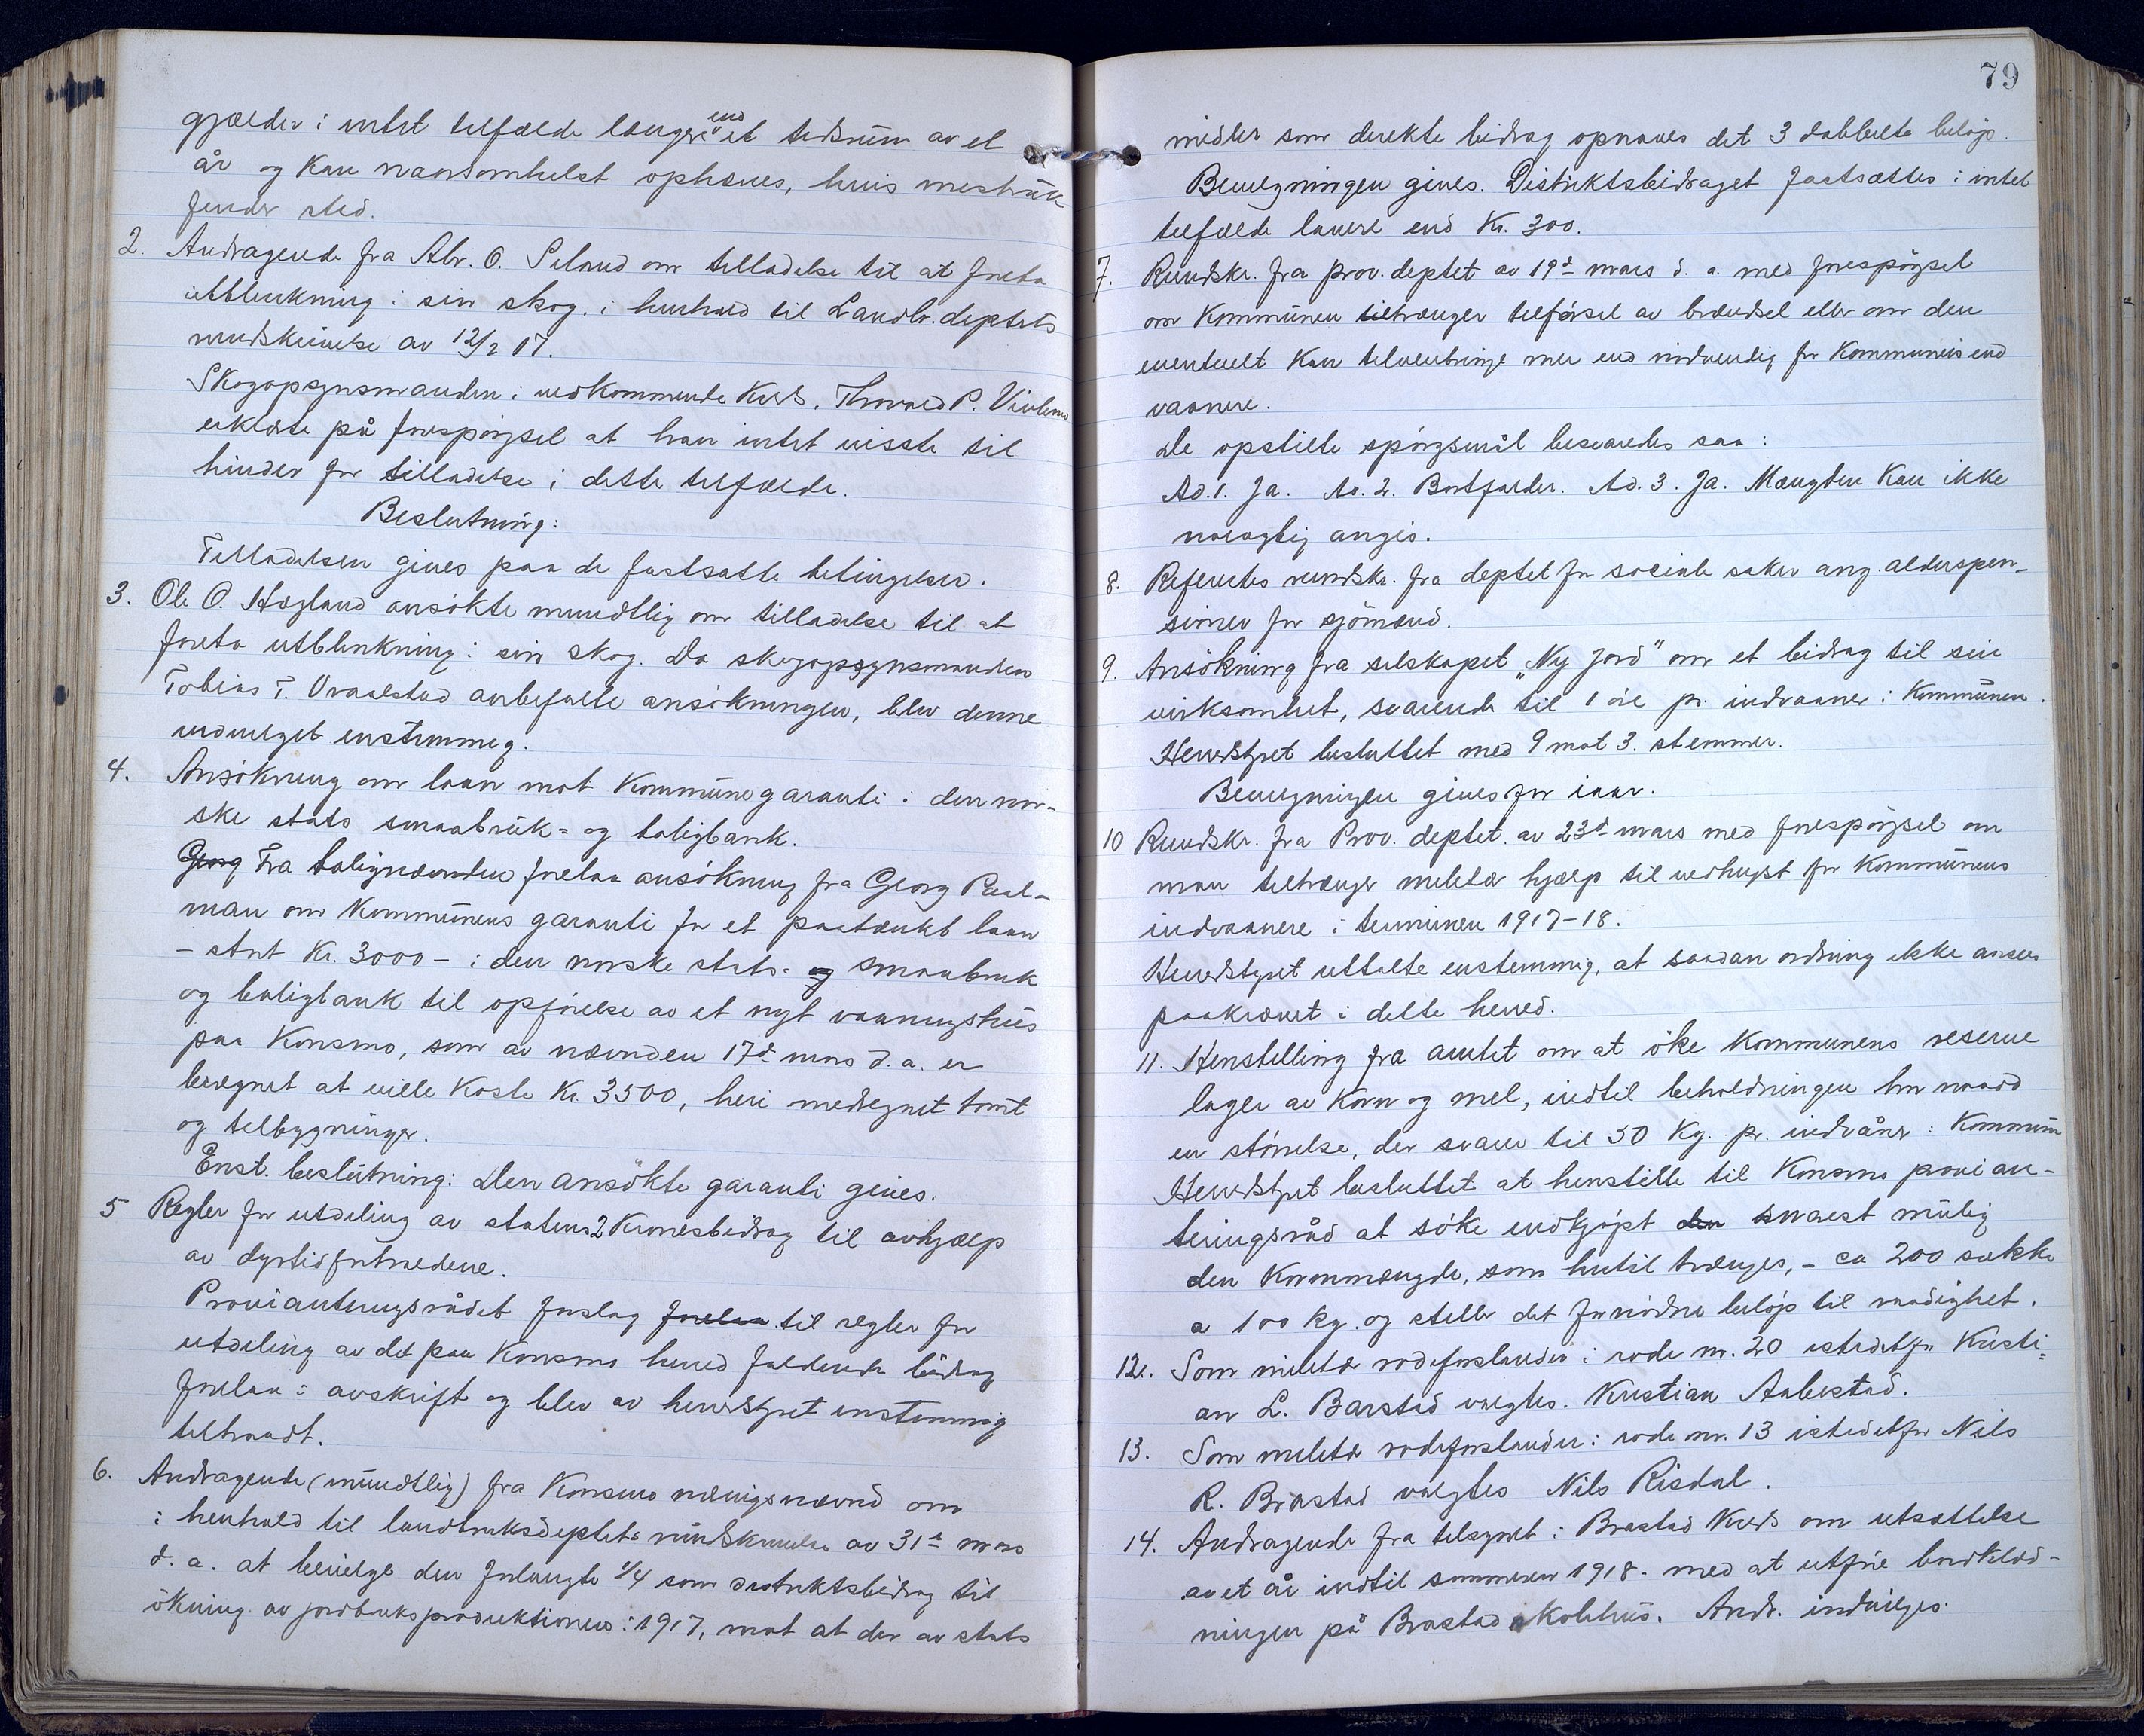 gjælder i intet tilfælde længere end et tidsrum av et
år og kan naarsomhelst ophæves, hvis misbruk
finder sted.
2. Andragende fra Abr. O. Seland om tilladelse til at foreta
utblinkning i sin skog, i henhold til Landbr.deptets
rundskrivelse av 12/2 17.
Skogopsynsmanden i vedkommende kreds, Thorvald P. Vivlemo
erklærte på forespørgsel at han intet visste til
hinder for tilladelse i dette tilfælde.
Beslutning:
Tilladelsen gives paa de fastsatte betingelser.
3. Ole O. Høgland ansökte mundtlig om tilladelse til at
foreta utblinkning i sin skog. Da skogopsynsmanden
Tobias T. Ovaalstad anbefalte ansökningen, blev denne
indvilget enstemmig.
4. Ansökning om laan mot kommunegaranti i den nor-
ske stats smaabruk- og boligbank.
Georg Fra bolignævnden forelaa ansökning fra Georg Paul-
man om kommunens garanti for et paatænkt laan
- stort Kr. 3000 - i den norske stats- og smaabruk
og boligbank til opförelse av et nyt vaaningshus
paa Konsmo, som av nævnden 17de mars d.a. er
beregnet at ville koste Kr. 3500, heri medregnet tomt
og tilbygninger.
Enst. beslutning: Den ansökte garanti gives.
5 Regler for utdeling av statens 2 kronersbidrag til avhjælp
av dyrtidsfortrædene.
Provianteringsrådets forslag forelaa til regler for
utdeling av det paa Konsmo herred faldende bidrag
forelaa i avskrift og blev av herredstyret enstemmig
tiltraadt.
6. Andragende (mundtlig) fra Konsmo næringsnævnd om
i henhold til landbruksdeptets rundskrivelse av 31te mars
d.a. at bevilge den forlangte 1/4 som distriktsbidrag til
ökning av jordbruksproduktionen i 1917, mot at der av stats
79
midler som direkte bidrag opnaaes det 3 dobbelte belöp.
Bevilgningen gives. Distriktsbidraget fastsættes i intet
tilfælde lavere end Kr. 300.
7. Rundskr. fra prov.deptet av 19de mars d.a. med forespörgsel
om kommunen tiltrænger tilförsel av brændsel eller om den
eventuelt kan tilveiebringe mer end nödvendig for kommunens ind
vaanere.
De opstilte spörgsmål besvaredes saa:
Ad. 1. Ja. Ad. 2. Bortfalder. Ad. 3. Ja. Mængden kan ikke
nöiagtig angis.
8. Refertes rundskr. fra deptet for sociale saker ang. alderspen-
sioner for sjömænd.
9. Ansökning fra selskapet "Ny Jord" om et bidrag til sin
virksomhet, svarende til 1 öre pr. indvaaner i kommunen.
Herredstyret besluttet med 9 mot 3. stemmer.
Bevilgningen gives for iaar.
10 Rundskr. fra Prov.deptet. av 23de mars med forespörgsel om
man tiltrænger militær hjælp til vedhugst for kommunens
indvaanere i terminen 1917-18.
Herredstyret uttalte enstemmig, at saadan ordning ikke ansees
paakrævet i dette herred.
11. Henstilling fra amtet om at öke kommunens reserve
lager av korn og mel, indtil beholdningen har naadd
en störrelse, der svarer til 50 Kg. pr. indvåner i kommun
Herredstyret besluttet at henstille til Konsmo provian-
teringsråd at söke indkjöpt den snarest mulig
den kornmængde, som hertil trænges, - ca 200 sække
a 100 kg. og stiller det fornödne belöp til raadighet.
12. Som militær rodeforstander i rode nr. 20 istedetfor Kristi-
an L. Barstad valgtes. Kristian Aabestad.
13. Som militær rodeforstander i rode nr. 13 istedetfor Nils
R. Brastad valgtes Nils Risdal.
14. Andragende fra tilsynet i Brastad kreds om utsættelse
av et år indtil sommeren 1918 - med at utföre bordklæd-
ningen på Brastad skolehus. Andr. indvilges.